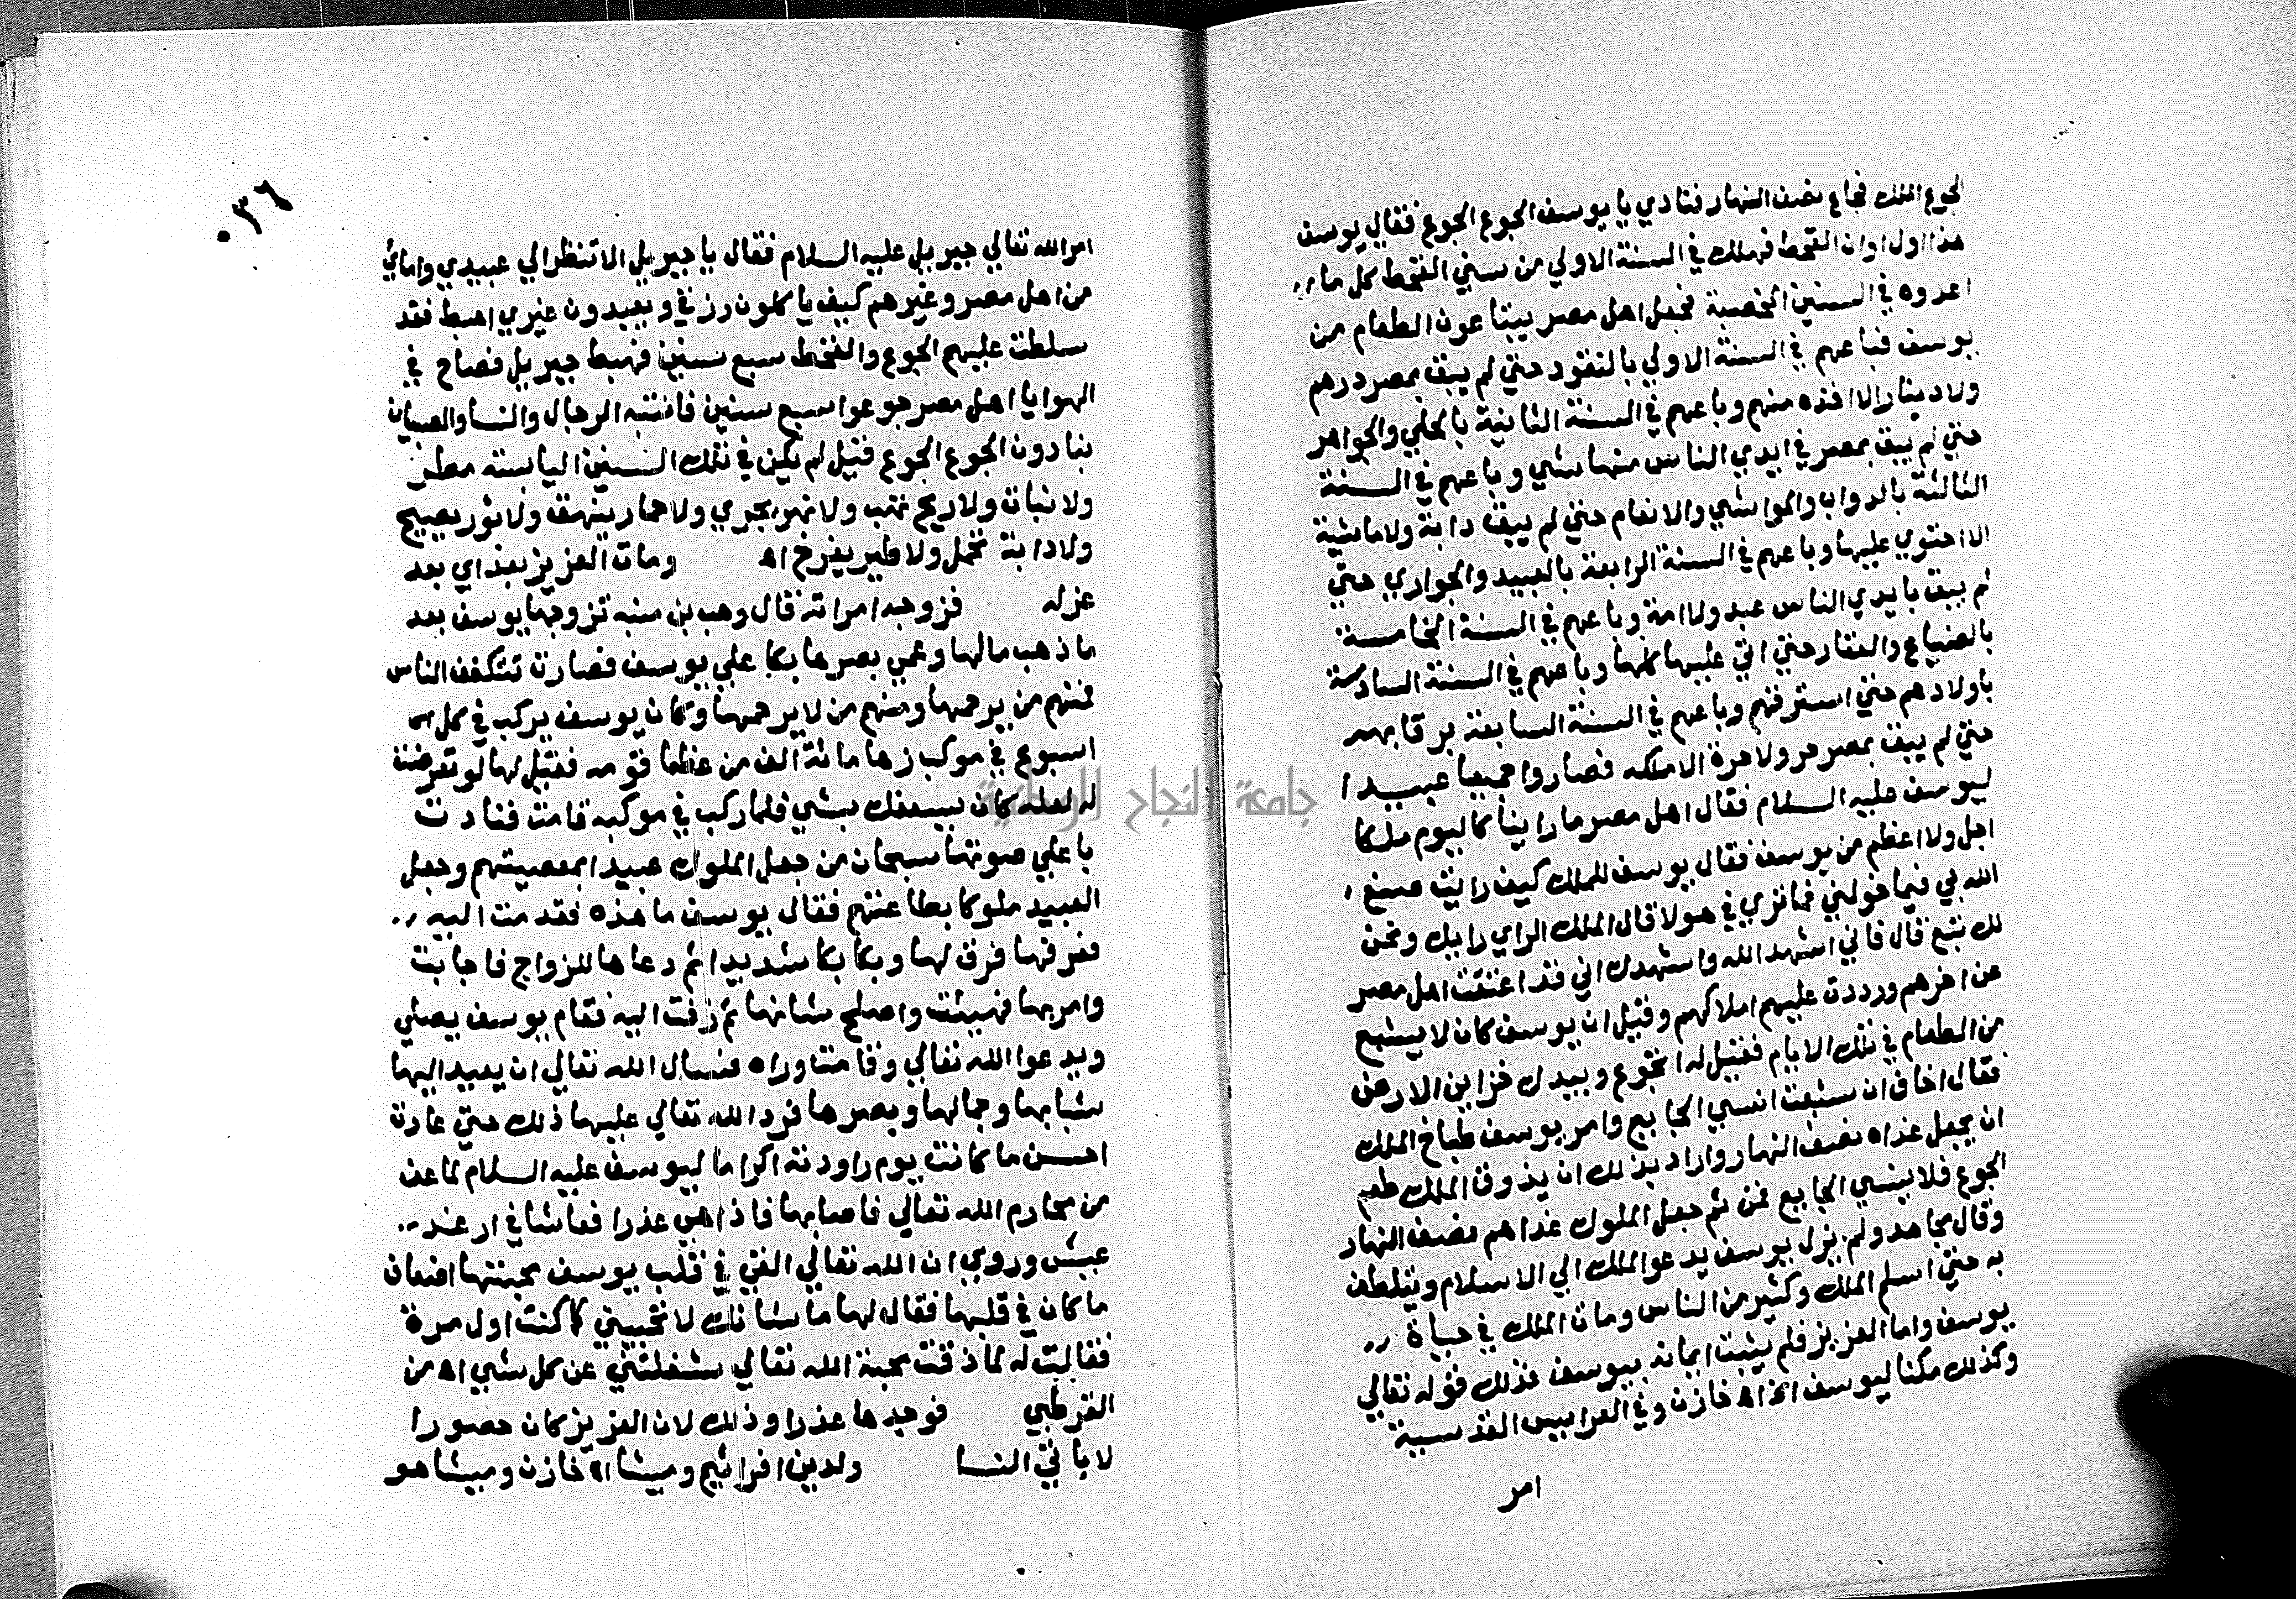 الجوع الملك فجاع نصف النهار فنادي يا يوسف الجوع الجوع فقال يوسف
هذا اول اوان القحط فهلك في السنة الاولي من سني القحط كل ما
اعدوه في السنين المخصبة فجعل اهل مصر يبتاعون الطعام من
يوسف فباعهم في السنة الاولي بالنقود حتي لم يبق بمصر درهم
ولا دينار الا اخذه منهم وباعهم في السنة الثانية بالحلي والجواهر
حتي لم يبق بمصر في ايدي الناس منها شي وباعهم في السنة
الثالثة بالدواب والمواشي والانعام حتي لم يبق دابة ولا ماشية
الا احتوي عليها وباعهم في السنة الرابعة بالعبيد والجواري حتي
لم يبق بايدي الناس عبد ولا امة وباعهم في السنة الخامسة
بالضياع والعقار حتي اتي عليها كلها وباعهم في السنة السادسة
باولادهم حتي استرقهم وباعهم في السنة السابعة برقابهم
حتي لم يبق بمصر حر ولا حرة الا ملكه فصاروا جميعا عبيدا
ليوسف عليه السلام فقال اهل مصر ما راينا كاليوم ملكا
اجل ولا اعظم من يوسف فقال يوسف للملك كيف رايت صنع
الله بي فيما خولني فما تري في هولا قال الملك الراي رايك ونحن
لك تبع قال فاني اشهد الله واشهدك اني قد اعتقت اهل مصر
عن اخرهم ورددت عليهم املاكهم وقيل ان يوسف كان لا يشبع
من الطعام في تلك الايام فقيل له اتجوع وبيدك خزاين الارض
فقال اخاف ان شبعت انسي الجايع وامر يوسف طباخ الملك
ان يجعل غداه نصف النهار واراد بذلك ان يذوق الملك طعم
الجوع فلا ينسي الجايع فمن ثم جعل الملوك غداهم نصف النهار
وقال مجاهد ولم يزل يوسف يدعو الملك الي الاسلام ويتلطف
به حتي اسلم الملك وكثير من الناس ومات الملك في حياة
يوسف واما العزيز فلم يثبت ايمانه بيوسف فذلك قوله تعالي
وكذلك مكنا ليوسف الخ اه خازن وفي العرايس القدسية
امر
٠٣٦
امر الله تعالي جبريل عليه السلام فقال يا جبريل الا تنظر الي عبيدي وامائي
من اهل مصر وغيرهم كيف ياكلون رزقي ويعبدون غيري اهبط فقد
سلطت عليهم الجوع والقحط سبع سنين فهبط جبريل فصاح في
الهوا يا اهل مصر جوعوا سبع سنين فانتبه الرجال والنسا والصبيان
ينادون الجوع الجوع قيل لم يكن في تلك السنين اليابسة مطر
ولا نبات ولا ريح تهب ولا نهر يجري ولا حمار ينهق ولا ثور يصيح
ولا دابة تحمل ولا طير يفرخ اه ومات العزيز بعد اي بعد
عزله فزوجه امراته قال وهب بن منبه تزوجها يوسف بعد
ما ذهب مالها وعمي بصرها بكا علي يوسف فصارت تتكفف الناس
فمنهم من يرحمها ومنهم من لا يرحمها وكان يوسف يركب في كل
اسبوع في موكب زها مائة الف من عظما قومه فقيل لها لو تعرضت
له لعله كان يسعفك بشي فلما ركب في موكبه قامت فنادت
باعلي صوتها سبحان من جعل الملوك عبيدا بمعصيتهم وجعل
العبيد ملوكا بطاعتهم فقال يوسف ما هذه فقدمت اليه
فعرفها فرق لها وبكا بكا شديدا ثم دعاها للزواج فاجابت
وامر بها فهيئت واصلح شانها ثم زفت اليه فقام يوسف يصلي
ويدعوا الله تعالي وقامت وراه فسال الله تعالي ان يعيد اليها
شبابها وجمالها وبصرها فرد الله تعالي عليها ذلك حتي عادت
احسن ما كانت يوم راودته اكراما ليوسف عليه السلام لما عف
من محارم الله تعالي فاصابها فاذا هي عذرا فعاشا في ارغد
عيش وروي ان الله تعالي القي في قلب يوسف محبتها اضعاف
ما كان في قلبها فقال لها ما شانك لا تحبيني كما كنت اول مرة
فقالت له لما ذقت محبة الله تعالي شغلتني عن كل شي اه من
القرطبي فوجدها عذرا وذلك لان العزيز كان حصورا
لا ياتي النسا ولدين افراثيم وميشا اه خازن وميشا هو
جامعة النجاح الوطنية